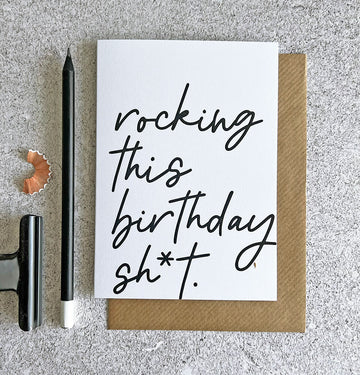 rocking
this
birthday
sh*t.